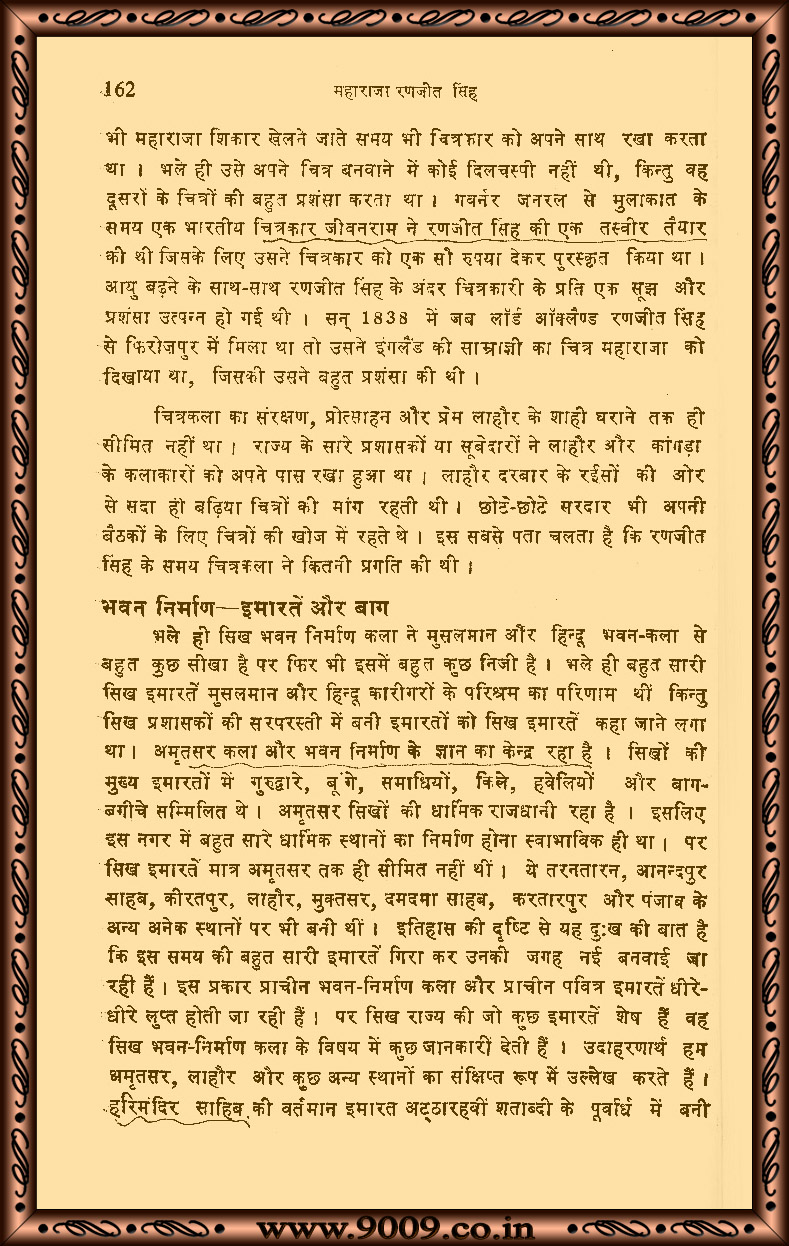 162
महाराजा रणजीत सिंह
भी महाराजा शिकार खेलने जाते समय भी चित्रकार को अपने साथ रखा करता
था। भले ही उसे अपने चित्र बनवाने में कोई दिलचस्पी नहीं थी, किन्तु वह
दूसरों के चित्रों की बहुत प्रशंसा करता था। गवर्नर जनरल से मुलाकात के
समय एक भारतीय चित्रकार जीवनराम ने रणजीत सिंह की एक तस्वीर तैयार
की थी जिसके लिए उसने चित्रकार को एक सौ रुपया देकर पुरस्कृत किया था।
आयु बढ़ने के साथ-साथ रणजीत सिंह के अंदर चित्रकारी के प्रति एक सूझ और
प्रशंसा उत्पन्न हो गई थी। सन् 1838 में जब लॉर्ड ऑक्लैण्ड रणजीत सिंह
से फिरोजपुर में मिला था तो उसने इंगलैंड की साम्राज्ञी का चित्र महाराजा को
दिखाया था, जिसकी उसने बहुत प्रशंसा की थी।
चित्रकला का संरक्षण, प्रोत्साहन और प्रेम लाहौर के शाही घराने तक ही
सीमित नहीं था। राज्य के सारे प्रशासकों या सूबेदारों ने लाहौर और कांगड़ा
के कलाकारों को अपने पास रखा हुआ था। लाहौर दरबार के रईसों की ओर
से सदा ही बढ़िया चित्रों की मांग रहती थी। छोटे-छोटे सरदार भी अपनी
बैठकों के लिए चित्रों की खोज में रहते थे। इस सबसे पता चलता है कि रणजीत
सिंह के समय चित्रकला ने कितनी प्रगति की थी।
भवन निर्माण—इमारतें और बाग
भले ही सिख भवन निर्माण कला ने मुसलमान और हिन्दू भवन-कला से
बहुत कुछ सीखा है पर फिर भी इसमें बहुत कुछ निजी है। भले ही बहुत सारी
सिख इमारतें मुसलमान और हिन्दू कारीगरों के परिश्रम का परिणाम थीं किन्तु
सिख प्रशासकों की सरपरस्ती में बनी इमारतों को सिख इमारतें कहा जाने लगा
था। अमृतसर कला और भवन निर्माण के ज्ञान का केन्द्र रहा है। सिखों की
मुख्य इमारतों में गुरुद्वारे, बूंगे, समाधियों, किले, हवेलियों और बाग-
बगीचे सम्मिलित थे। अमृतसर सिखों की धार्मिक राजधानी रहा है। इसलिए
इस नगर में बहुत सारे धार्मिक स्थानों का निर्माण होना स्वाभाविक ही था। पर
सिख इमारतें मात्र अमृतसर तक ही सीमित नहीं थीं। ये तरनतारन, आनन्दपुर
साहब, कीरतपुर, लाहौर, मुक्तसर, दमदमा साहब, करतारपुर और पंजाब के
अन्य अनेक स्थानों पर भी बनी थीं। इतिहास की दृष्टि से यह दुःख की बात है
कि इस समय की बहुत सारी इमारतें गिरा कर उनकी जगह नई बनवाई जा
रही हैं। इस प्रकार प्राचीन भवन-निर्माण कला और प्राचीन पवित्र इमारतें धीरे-
धीरे लुप्त होती जा रही हैं। पर सिख राज्य की जो कुछ इमारतें शेष हैं वह
सिख भवन-निर्माण कला के विषय में कुछ जानकारी देती हैं। उदाहरणार्थ हम
अमृतसर, लाहौर और कुछ अन्य स्थानों का संक्षिप्त रूप में उल्लेख करते हैं।
हरिमंदिर साहिब की वर्तमान इमारत अट्ठारहवीं शताब्दी के पूर्वार्ध में बनी
www.9009.co.in